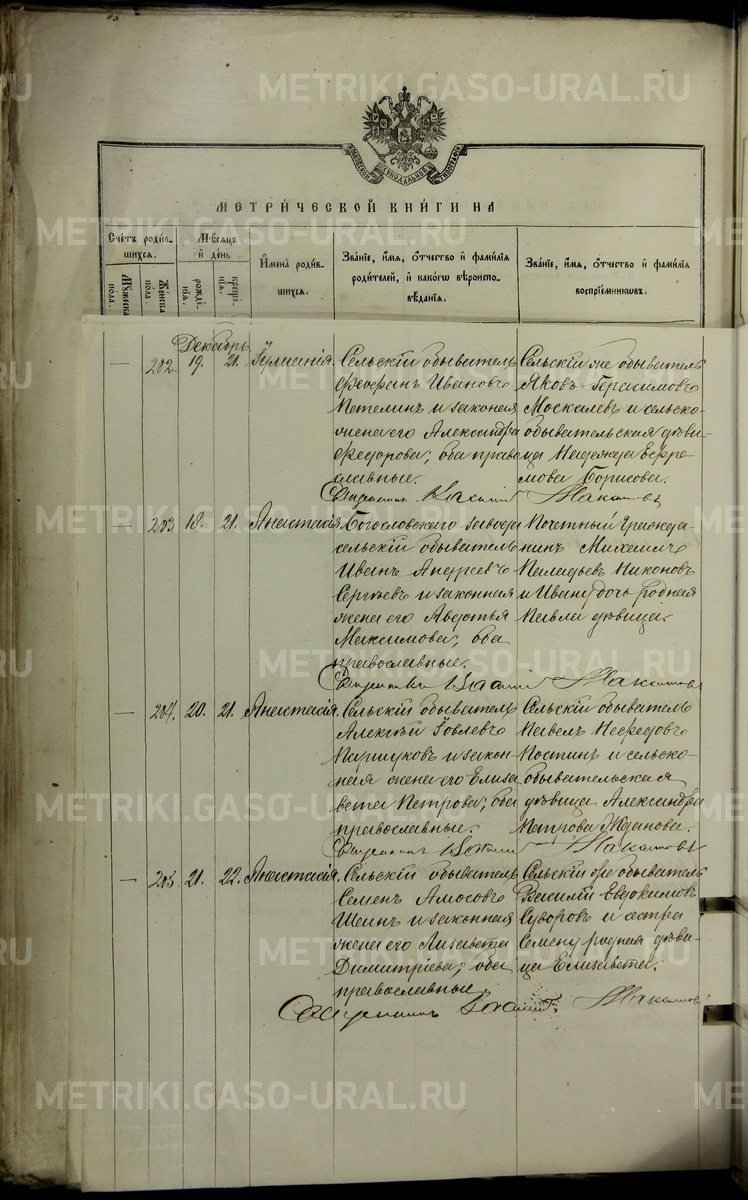 METRIKI.GASO-URAL.RU
МЕТРИЧЕСКОЙ КНИГИ НА
Счетъ родив-
шихся.
Мѣсяцъ
и день.
Имена родив-
шихся.
Званіе, имя, отчество и фамилія
родителей, и какого вѣроиспо-
вѣданія.
Званіе, имя, отчество и фамилія
воспріемниковъ.
Мужеска
пола.
Женска
пола.
рожде-
нія.
креще-
нія.
Декабрь
— 202. 19. 21. Іуліанія.
Сельскій обыватель
Феофанъ Ивановъ
Петелинъ и законная
жена его Александра
Федорова; оба право-
славные.
Сельскій же обыватель
Яковъ Герасимовъ
Москалевъ и сельско-
обывательская дѣви-
ца Надежда Ефре-
мова Борисова.
Священникъ
— 203 18. 21. Анастасія.
Богословскаго завода
сельскій обыватель
Иванъ Андреевъ
Сергѣевъ и законная
жена его Авдотья
Максимова; оба
православные.
Почетный гражда-
нинъ Михаилъ
Паладьевъ Никоновъ
и Ивану дочь родная
Павла дѣвица.
Священникъ
— 204. 20. 21. Анастасія.
Сельскій обыватель
Алексѣй Іовлевъ
Паршуковъ и закон-
ная жена его Елиза
вета Петрова; оба
православные.
Сельскій обыватель
Павелъ Нефедовъ
Постинъ и сельско-
обывательская
дѣвица Александра
Петрова Жданова.
Священникъ
— 205. 21. 22. Анастасія.
Сельскій обыватель
Семенъ Амосовъ
Шеинъ и законная
жена его Лизавета
Димитріева; оба
православные.
Сельскій же обыватель
Василій Евдокимовъ
Суворовъ и сестра
Семену родная дѣви-
ца Елизавета.
Священникъ